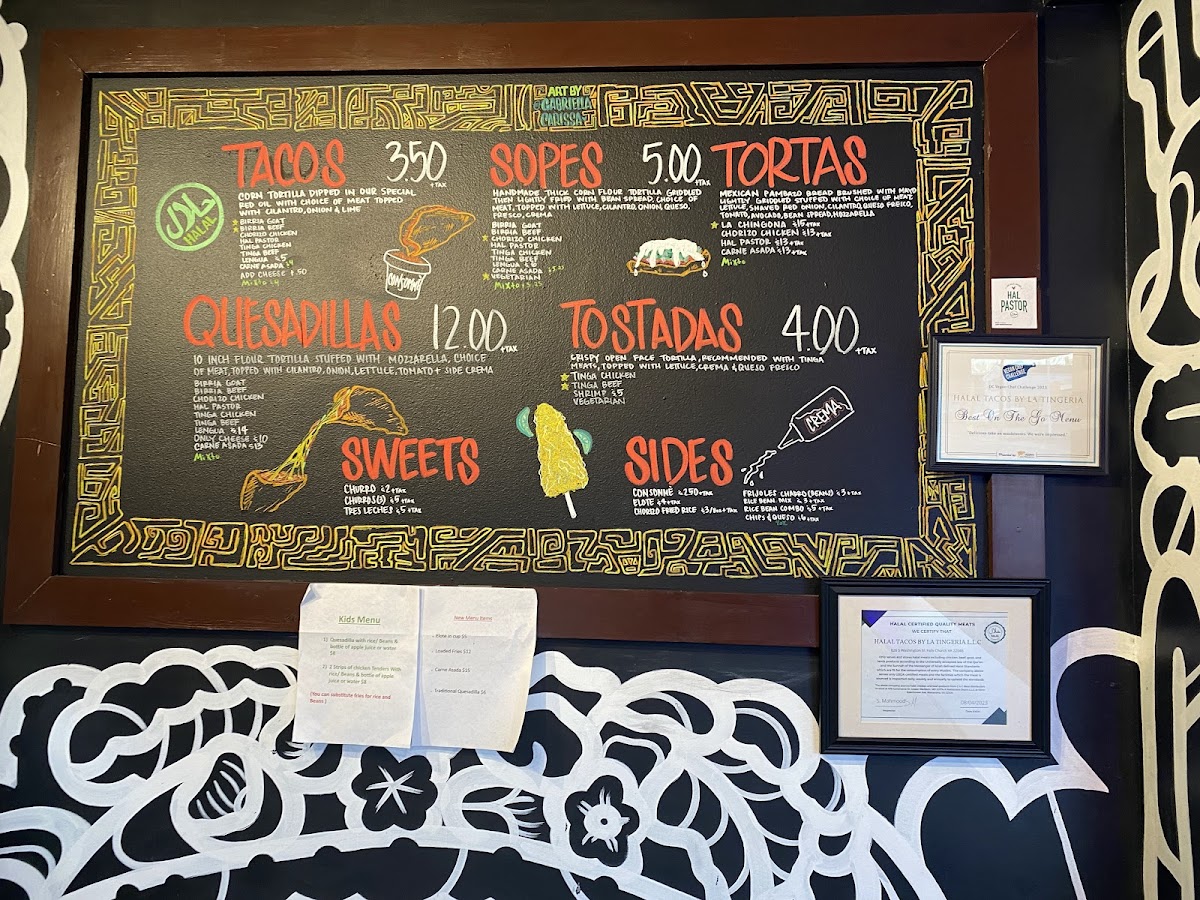 ART BY
GABRIELLA
CARISSA
TACOS 3.50 +TAX
CORN TORTILLA DIPPED IN OUR SPECIAL
RED OIL WITH CHOICE OF MEAT TOPPED
WITH CILANTRO, ONION & LIME
BIRRIA GOAT
BIRRIA BEEF
CHORIZO CHICKEN
HAL PASTOR
TINGA CHICKEN
TINGA BEEF
LENGUA $5
CARNE ASADA $4
ADD CHEESE $.50
Mixto $4
حلال
HALAL
CONSOMÉ
SOPES 5.00 +TAX
HANDMADE THICK CORN FLOUR TORTILLA GRIDDLED
THEN LIGHTLY FRIED WITH BEAN SPREAD, CHOICE OF
MEAT, TOPPED WITH LETTUCE, CILANTRO, ONION, QUESO,
FRESCO, CREMA
BIRRIA GOAT
BIRRIA BEEF
CHORIZO CHICKEN
HAL PASTOR
TINGA CHICKEN
TINGA BEEF
LENGUA $6
CARNE ASADA
VEGETARIAN
Mixto
TORTAS
MEXICAN PAMBAZO BREAD BRUSHED WITH MAYO
LIGHTLY GRIDDLED STUFFED WITH CHOICE OF MEAT,
LETTUCE, SHAVED RED ONION, CILANTRO, QUESO FRESCO,
TOMATO, AVOCADO, BEAN SPREAD, MOZZARELLA
LA CHINGONA $15+TAX
CHORIZO CHICKEN $13+TAX
HAL PASTOR $13+TAX
CARNE ASADA $13+TAX
Mixto
QUESADILLAS 12.00 +TAX
10 INCH FLOUR TORTILLA STUFFED WITH MOZZARELLA, CHOICE
OF MEAT, TOPPED WITH CILANTRO, ONION, LETTUCE, TOMATO + SIDE CREMA
BIRRIA GOAT
BIRRIA BEEF
CHORIZO CHICKEN
HAL PASTOR
TINGA CHICKEN
TINGA BEEF
LENGUA $14
ONLY CHEESE $10
CARNE ASADA $13
Mixto
TOSTADAS 4.00 +TAX
CRISPY OPEN FACE TORTILLA, RECOMMENDED WITH TINGA
MEATS, TOPPED WITH LETTUCE, CREMA & QUESO FRESCO
TINGA CHICKEN
TINGA BEEF
SHRIMP $5
VEGETARIAN
CREMA
SWEETS
CHURRO $2+TAX
CHURROS(3) $5+TAX
TRES LECHES $5+TAX
SIDES
CONSOMNE $2.50+TAX
ELOTE $4+TAX
CHORIZO FRIED RICE $3/8oz+TAX
FRIJOLES CHARRO (BEANS) $3+TAX
RICE BEAN MIX $3+TAX
RICE BEAN COMBO $5+TAX
CHIPS & QUESO $6+TAX
HAL
PASTOR
HALAL TACOS BY LA TINGERIA
Best On The Go Menu
Kids Menu
1) Quesadilla with rice/ Beans &
bottle of apple juice or water
$8
2) 2 Strips of chicken Tenders With
rice/ Beans & bottle of apple
juice or water $8
(You can substitute fries for rice and
Beans )
New Menu Items
- Elote in cup $5
- Loaded Fries $12
- Carne Asada $15
- Traditional Quesadilla $6
HALAL CERTIFIED QUALITY MEATS
WE CERTIFY THAT
HALAL TACOS BY LA TINGERIA L.L.C
S. Mahmood